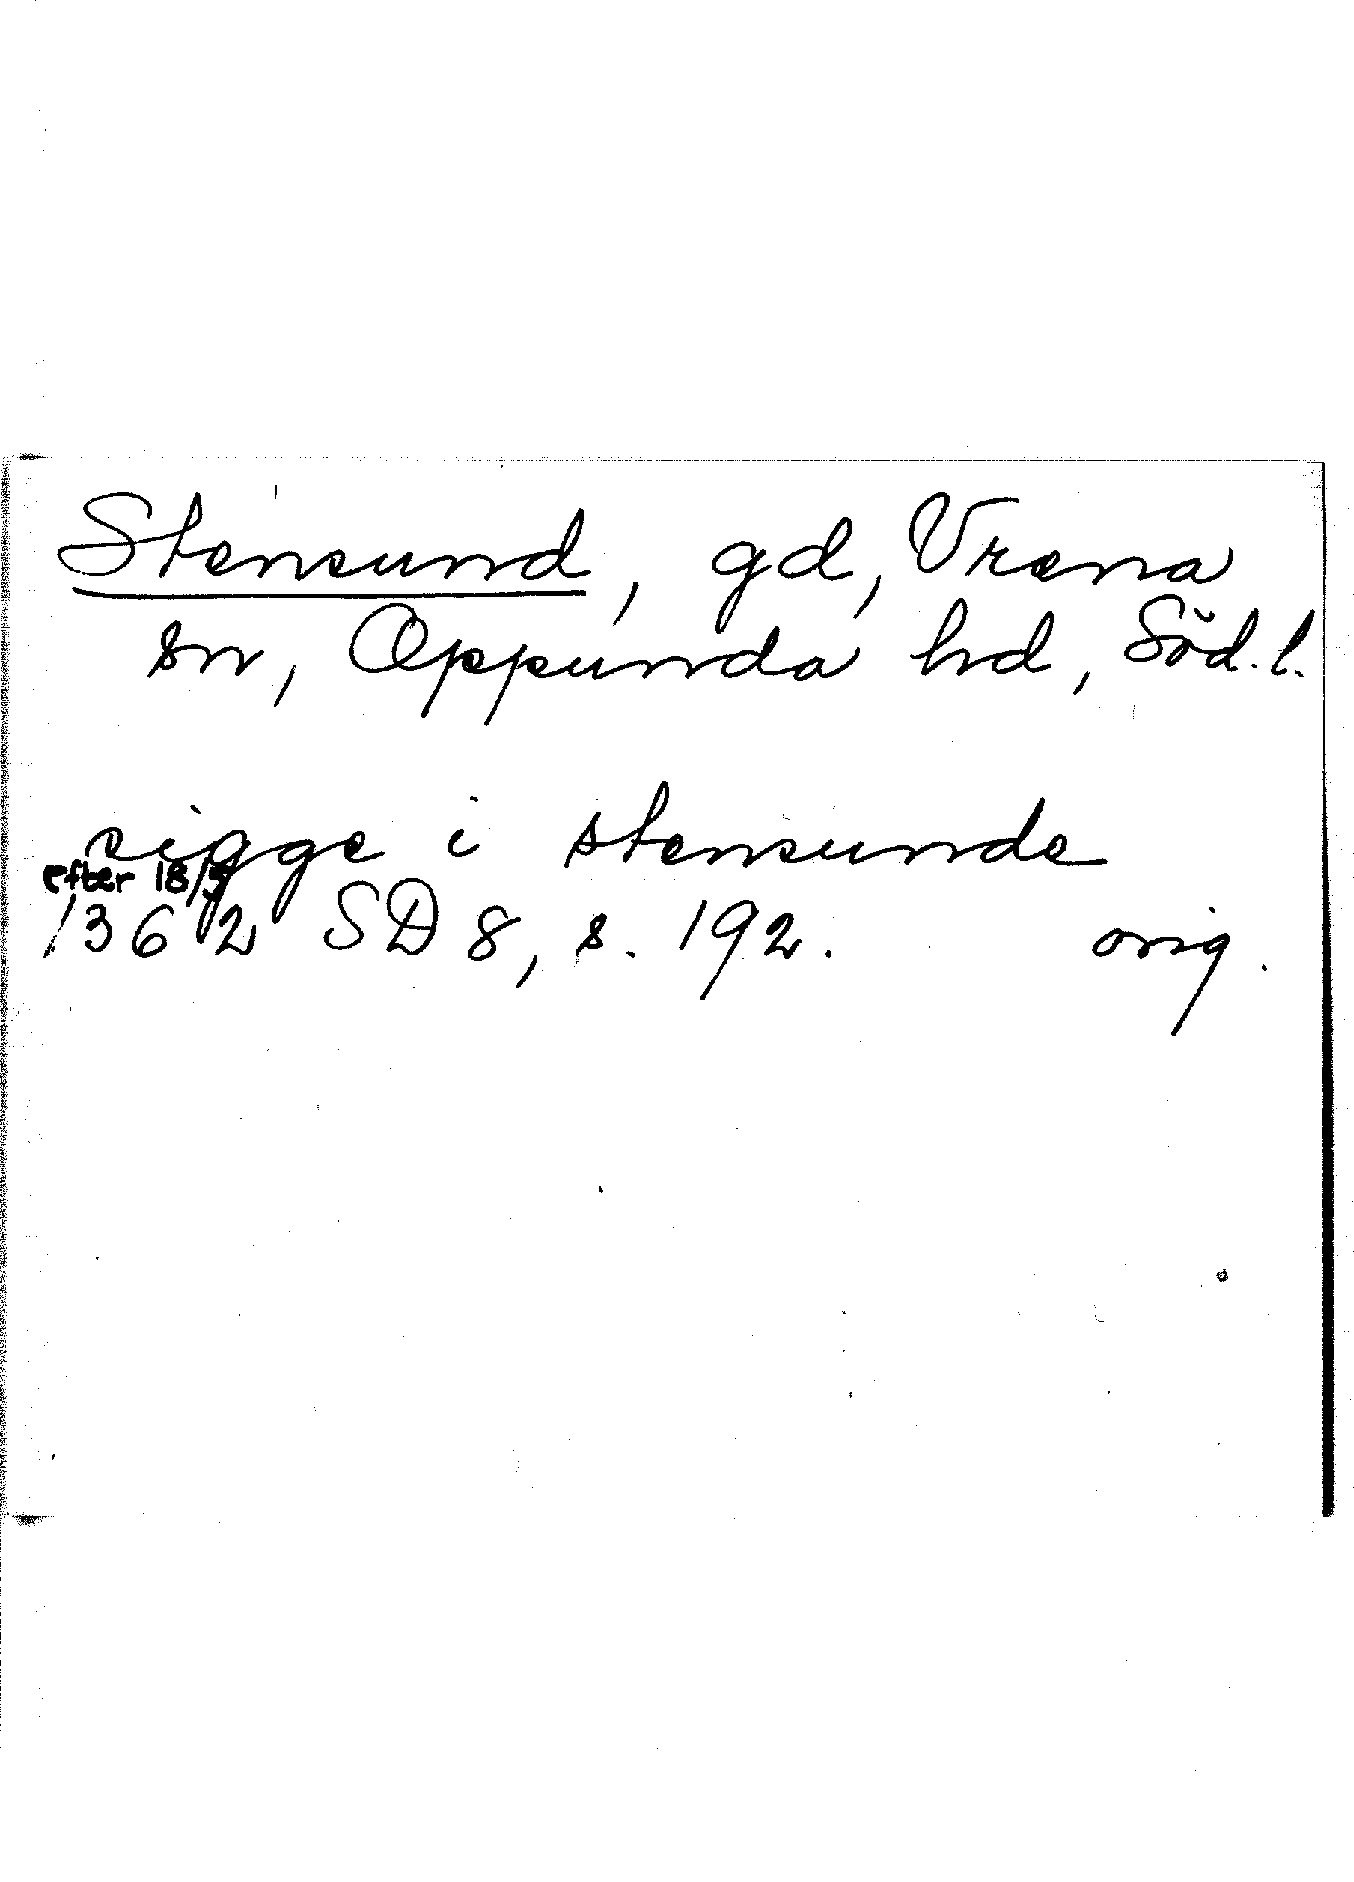 Stensund, gd, Vrena
sn, Oppunda hd, Söd.l.
sigge i stensunde
efter 18/5
1362 SD 8, s. 192. orig.